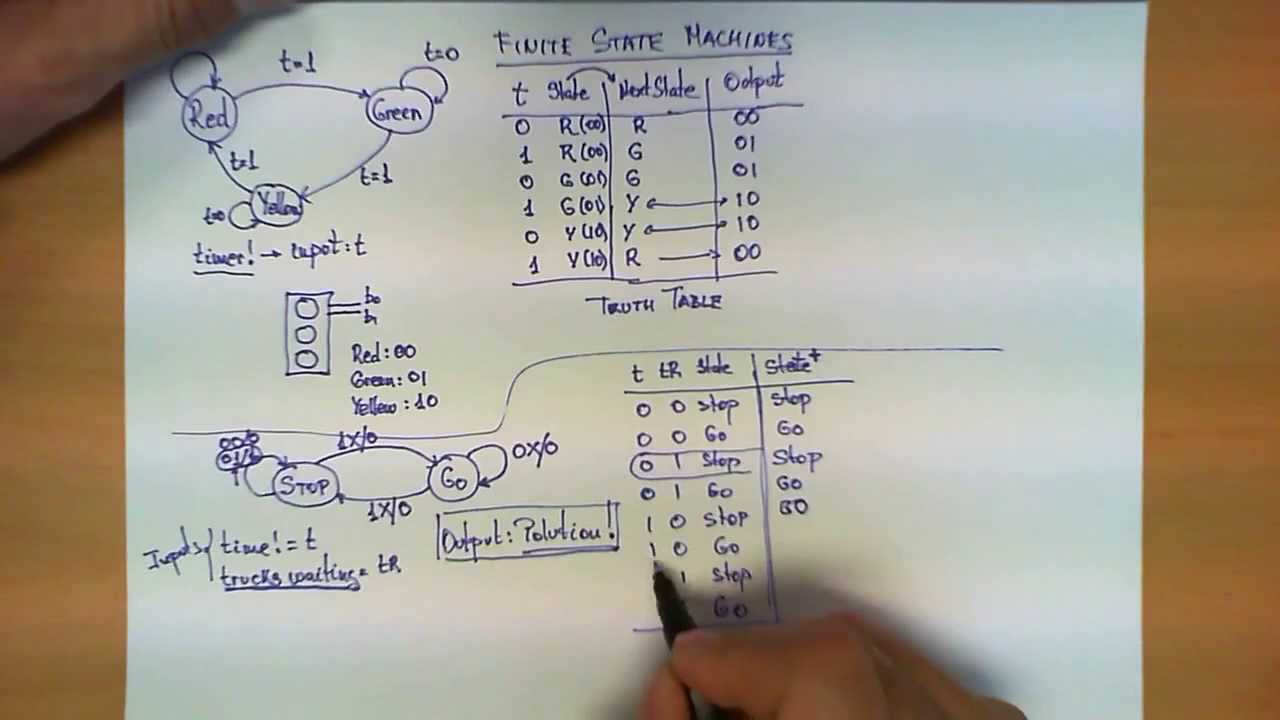 FINITE STATE MACHINES
t=1
t=0
Red
Green
t=1
t=1
t=0
Yellow
timer! → input: t
b0
b1
Red: 00
Green: 01
Yellow: 10
t State Next State Output
0 R(00) R 00
1 R(00) G 01
0 G(01) G 01
1 G(01) Y 10
0 Y(10) Y 10
1 Y(10) R 00
TRUTH TABLE
00/0
01/1
1X/0
0X/0
STOP
Go
1X/0
Output: Polution!
Inputs
time! = t
trucks waiting = tR
t tR State State+
0 0 Stop Stop
0 0 Go Go
0 1 Stop Stop
0 1 Go Go
1 0 Stop GO
1 0 Go
1 Stop
Go